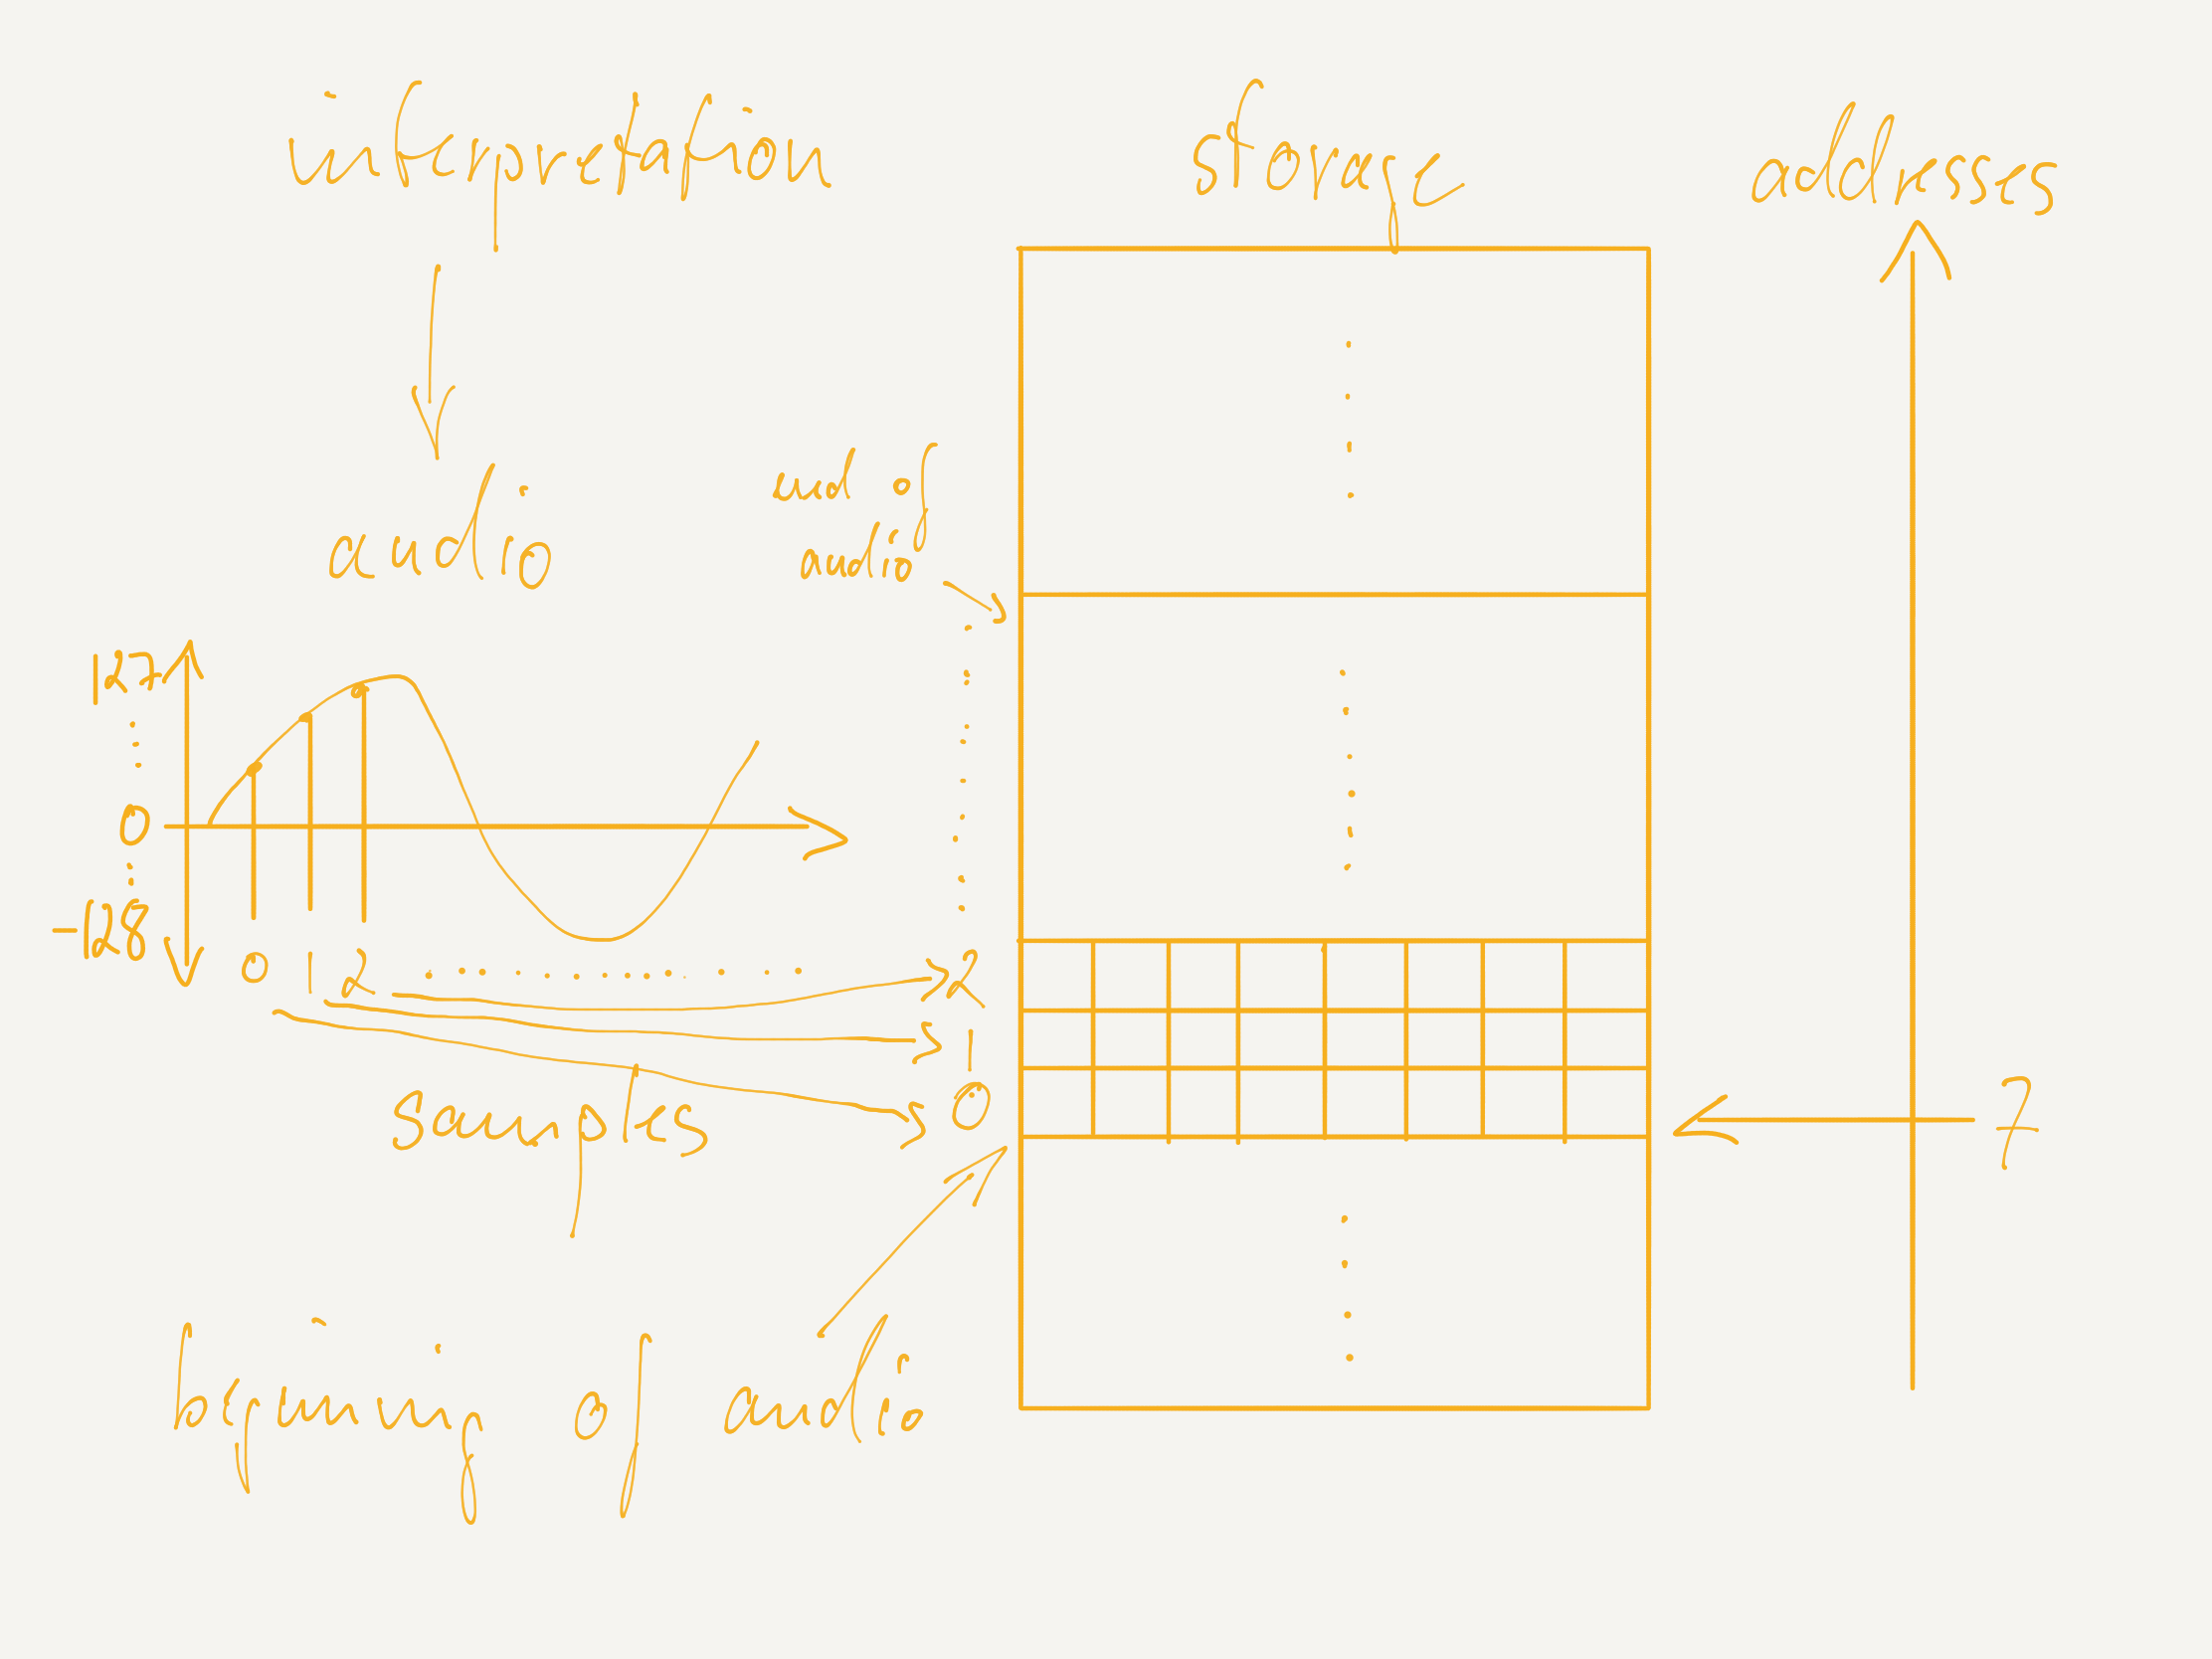 interpretation
storage
addresses
audio
end of
audio
127
0
-128
0 1 2
2
1
0
samples
7
begining of audio